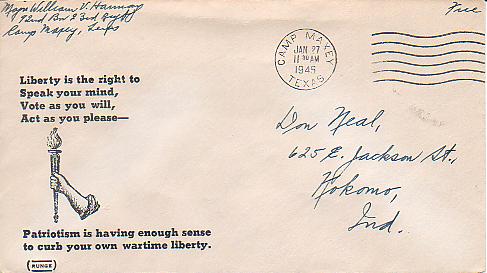 Maj. William V.
Camp Maxey, Texas
Free
CAMP MAXEY
JAN 27
11 30 AM
1945
TEXAS
Liberty is the right to
Speak your mind,
Vote as you will,
Act as you please—
Don Neal,
625 E. Jackson St.,
Kokomo,
Ind.
Patriotism is having enough sense
to curb your own wartime liberty.
RUNGE